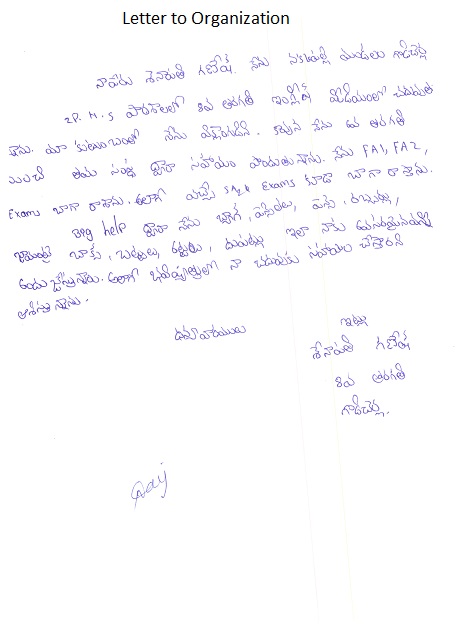 Letter to Organization
నాపేరు శేనాపతి గణేష్. నేను నక్కపల్లి మండలం గొడిచెర్ల
Z.P.H.S పాఠశాలలో 8వ తరగతి ఇంగ్లీష్ మీడియంలో చదువుతు
న్నాను. మా కుటుంబంలో నేను కావున నేను 6వ తరగతి
నుంచి తమ సంస్థ ద్వారా సహాయం పొందుతున్నాను. నేను FA1, FA2,
Exams బాగా రాశాను. అలాగే వచ్చే SA1 Exams కూడా బాగా రాస్తాను.
Big help ద్వారా నేను బ్యాగ్, పెన్సిళ్లు, పెన్, రబ్బర్లు,
బాక్సు, బట్టలు, దుప్పట్లు ఇలా నాకు అవసరమైనవన్నీ
అందజేస్తున్నారు. అలాగే భవిష్యత్తులో నా చదువుకు సహాయం చేస్తారని
ఆశిస్తున్నాను.
ధన్యవాదములు
ఇట్లు
శేనాపతి గణేష్
8వ తరగతి
గొడిచెర్ల.